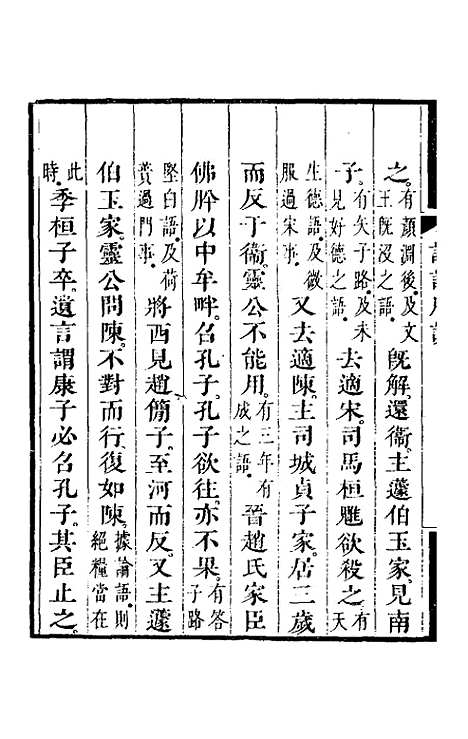 之。有顔淵後及文王旣沒之語。旣解還衞。主蘧伯玉家。見南
子。有矢子路及未見好德之語。去適宋。司馬桓魋欲殺之。有天
生德語及微服過宋事。又去適陳。主司城貞子家。居三歲
而反于衞。靈公不能用。有三年有成之語。晉趙氏家臣
佛肸以中牟畔。召孔子。孔子欲往。亦不果。有答子路
堅白語及荷蕢過門事。將西見趙簡子。至河而反。又主蘧
伯玉家。靈公問陳。不對而行。復如陳。據論語。則絕糧當在
此時。季桓子卒。遺言謂康子必召孔子。其臣止之。